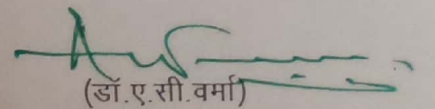 (डॉ.ए.सी.वर्मा)